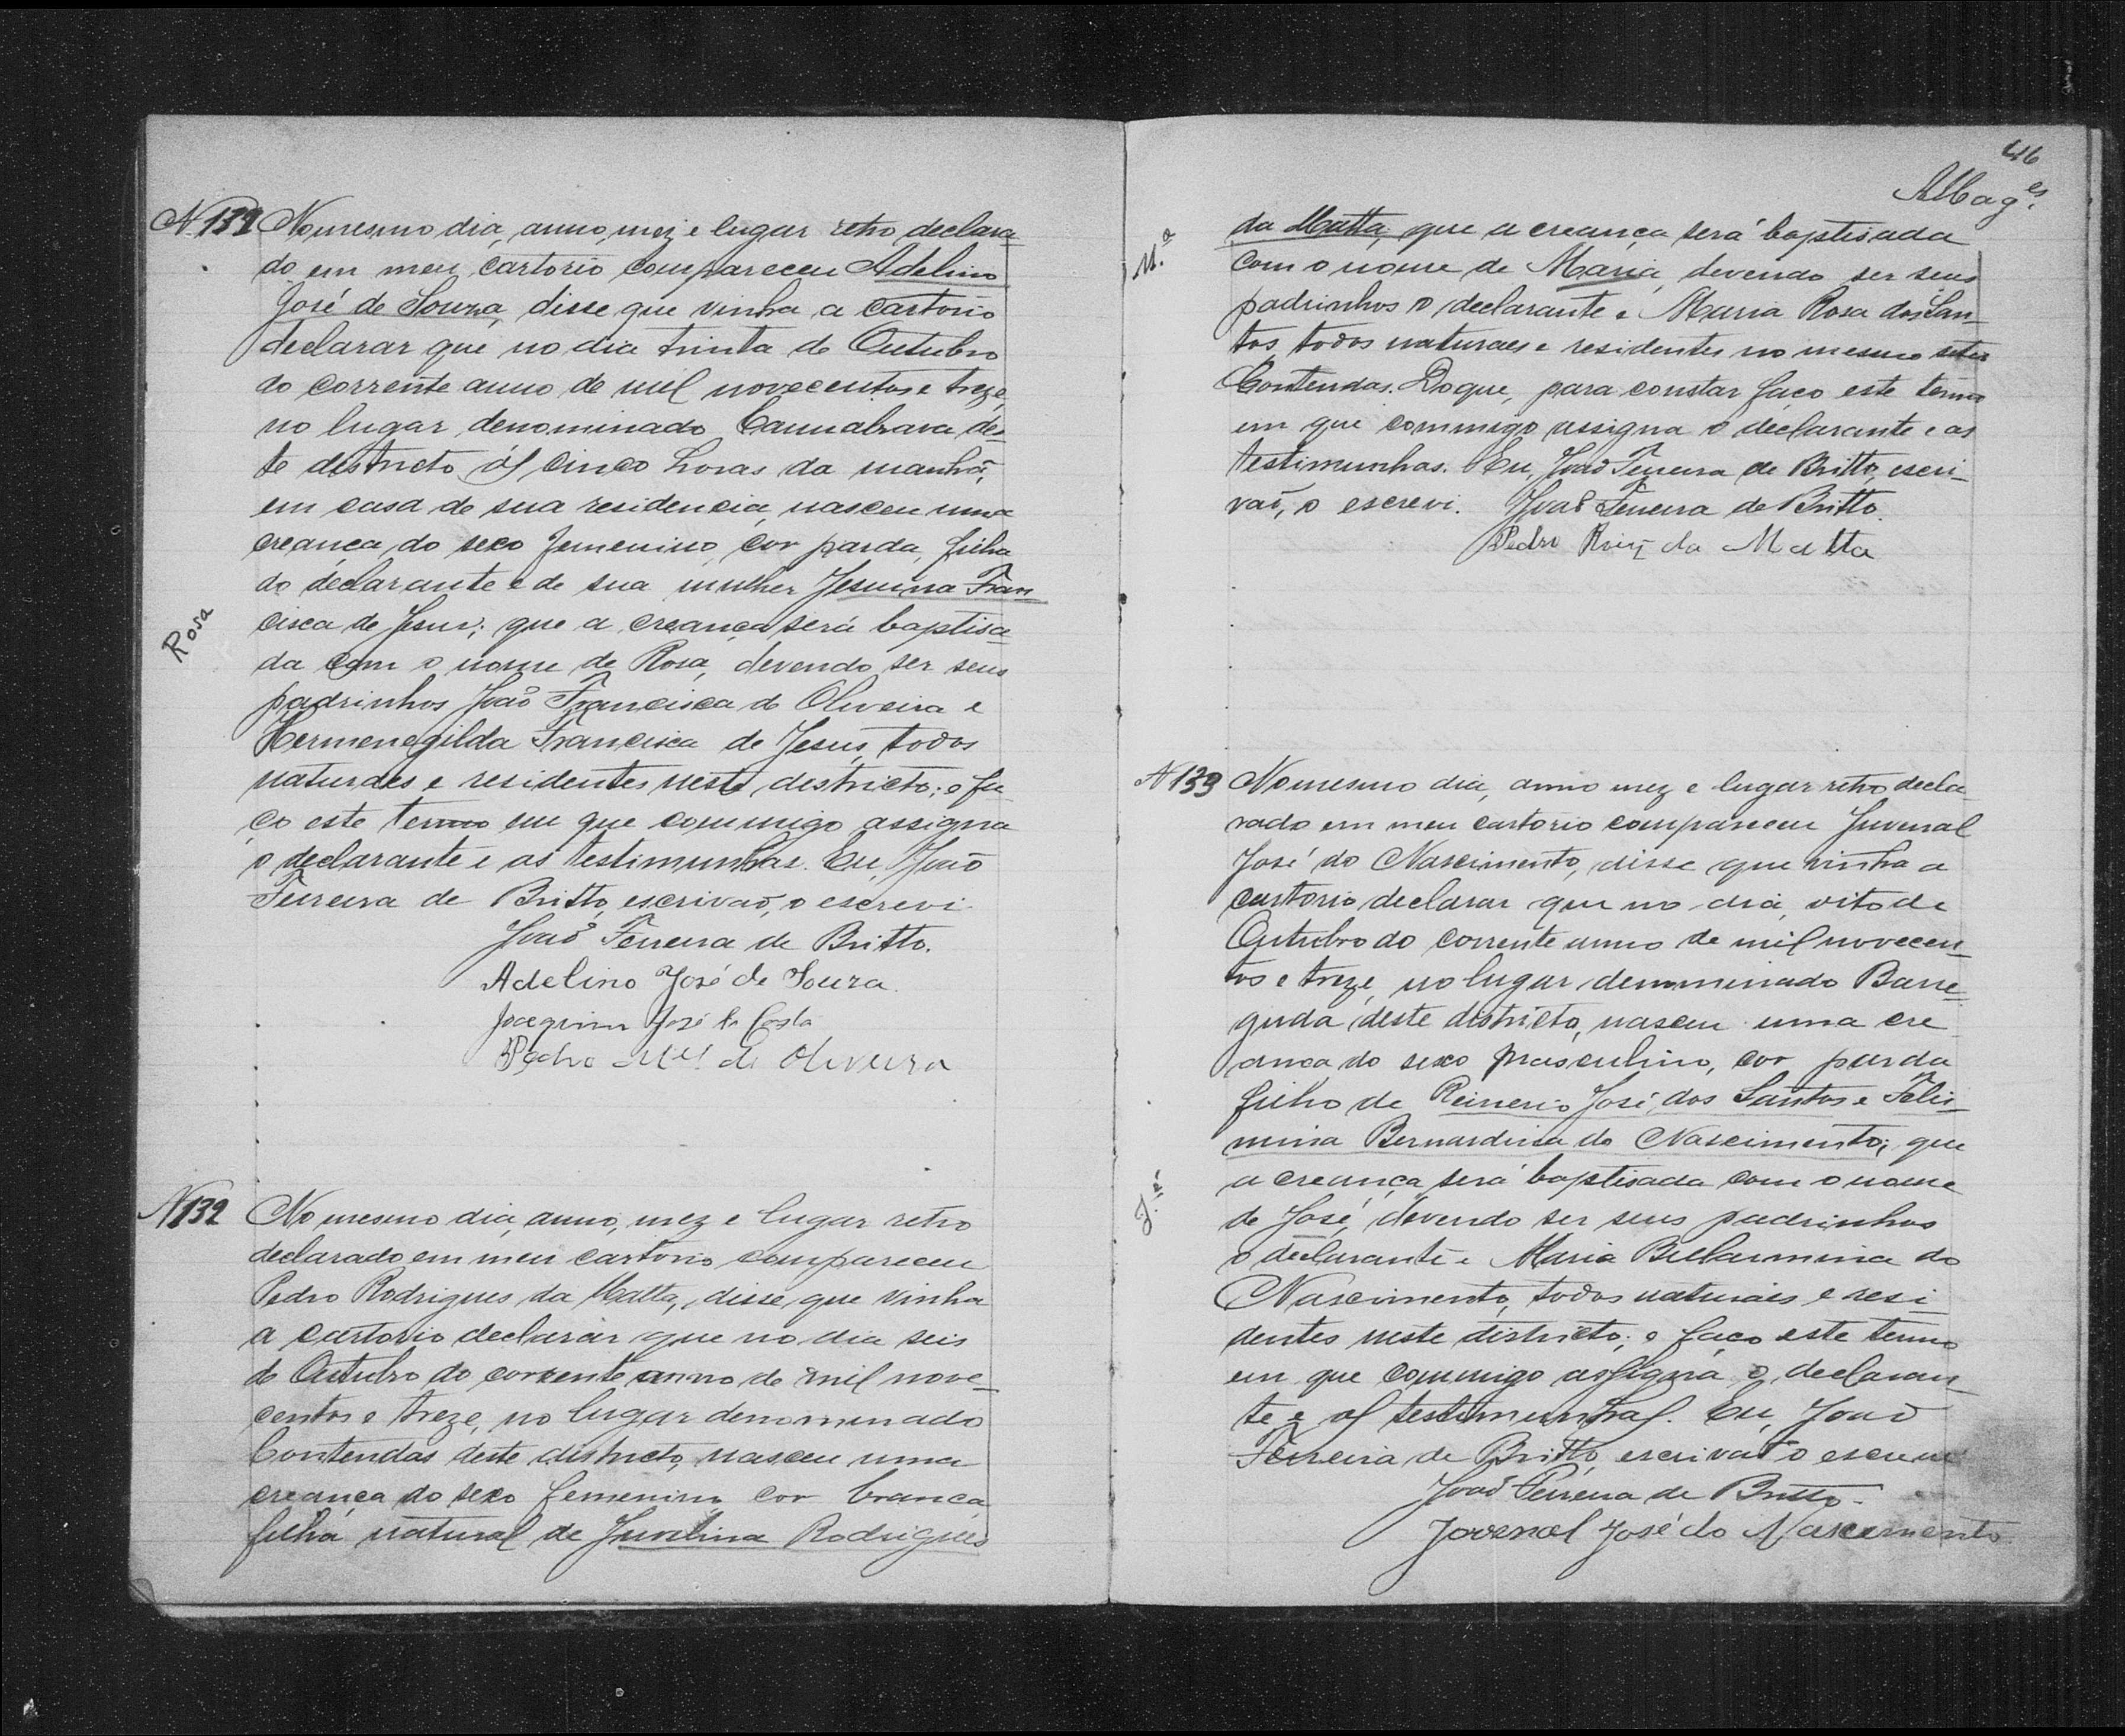 N 131 No mesmo dia, anno, mez e lugar retro declara
do em meu cartorio compareceu Adelino
José de Souza, disse que vinha a cartorio
declarar que no dia trinta de Outubro
do corrente anno de mil novecentos e treze,
no lugar denominado Cannabrava des-
te districto ás cinco horas da manhã,
em casa de sua residencia, nasceu uma
creança do sexo femenino, cor parda, filha
do declarante e de sua mulher Jesuina Fran
cisca de Jesus; que a creança será baptisa-
Rosa
da com o nome de Rosa, devendo ser seus
padrinhos João Francisca de Oliveira e
Hermenegilda Francisca de Jesus, todos
naturaes e residentes neste districto; e fa-
ço este termo em que commigo assigna
o declarante e as testimunhas. Eu, João
Ferreira de Britto, escrivão, o escrevi
João Ferreira de Britto.
Adelino José de Souza.
Joaquim José da Costa
Pedro Mel de Oliveira
N 132 No mesmo dia, anno, mez e lugar retro
declarado em meu cartorio compareceu
Pedro Rodrigues da Matta, disse que vinha
a cartorio declarar que no dia seis
de Outubro do corrente anno de mil nove-
centos e treze, no lugar denominado
Contendas deste districto, nasceu uma
creança do sexo femenino cor branca
filha natural de Juvelina Rodrigues
46
da Matta, que a creança será baptisada
M.a
com o nome de Maria, devendo ser seus
padrinhos o declarante e Maria Rosa dos San-
tos, todos naturaes e residentes no mesmo sitio
Contendas. Do que, para constar faço este termo
em que commigo assigna o declarante e as
testimunhas. Eu, João Ferreira de Britto, escri-
vão, o escrevi. João Ferreira de Britto.
Pedro Roiz da Matta
N 133 No mesmo dia, anno mez e lugar retro decla-
rado em meu cartorio compareceu Juvenal
José do Nascimento, disse que vinha a
cartorio declarar que no dia oito de
Outubro do corrente anno de mil novecen-
tos e treze, no lugar denominado Barre-
guda deste districto, nasceu uma cre
ança do sexo masculino, cor parda
filho de Reinerio José dos Santos e Felis-
mina Bernardina do Nascimento; que
a creança será baptisada com o nome
J.é
de José, devendo ser seus padrinhos
o declarante e Maria Bellarmina do
Nascimento, todos naturais e resi-
dentes neste districto; e faço este termo
em que commigo assigna o declaran-
te e as testimunhas. Eu, João
Ferreira de Britto, escrivão o escrevi
João Ferreira de Britto.
Jovenal José do Nascimento